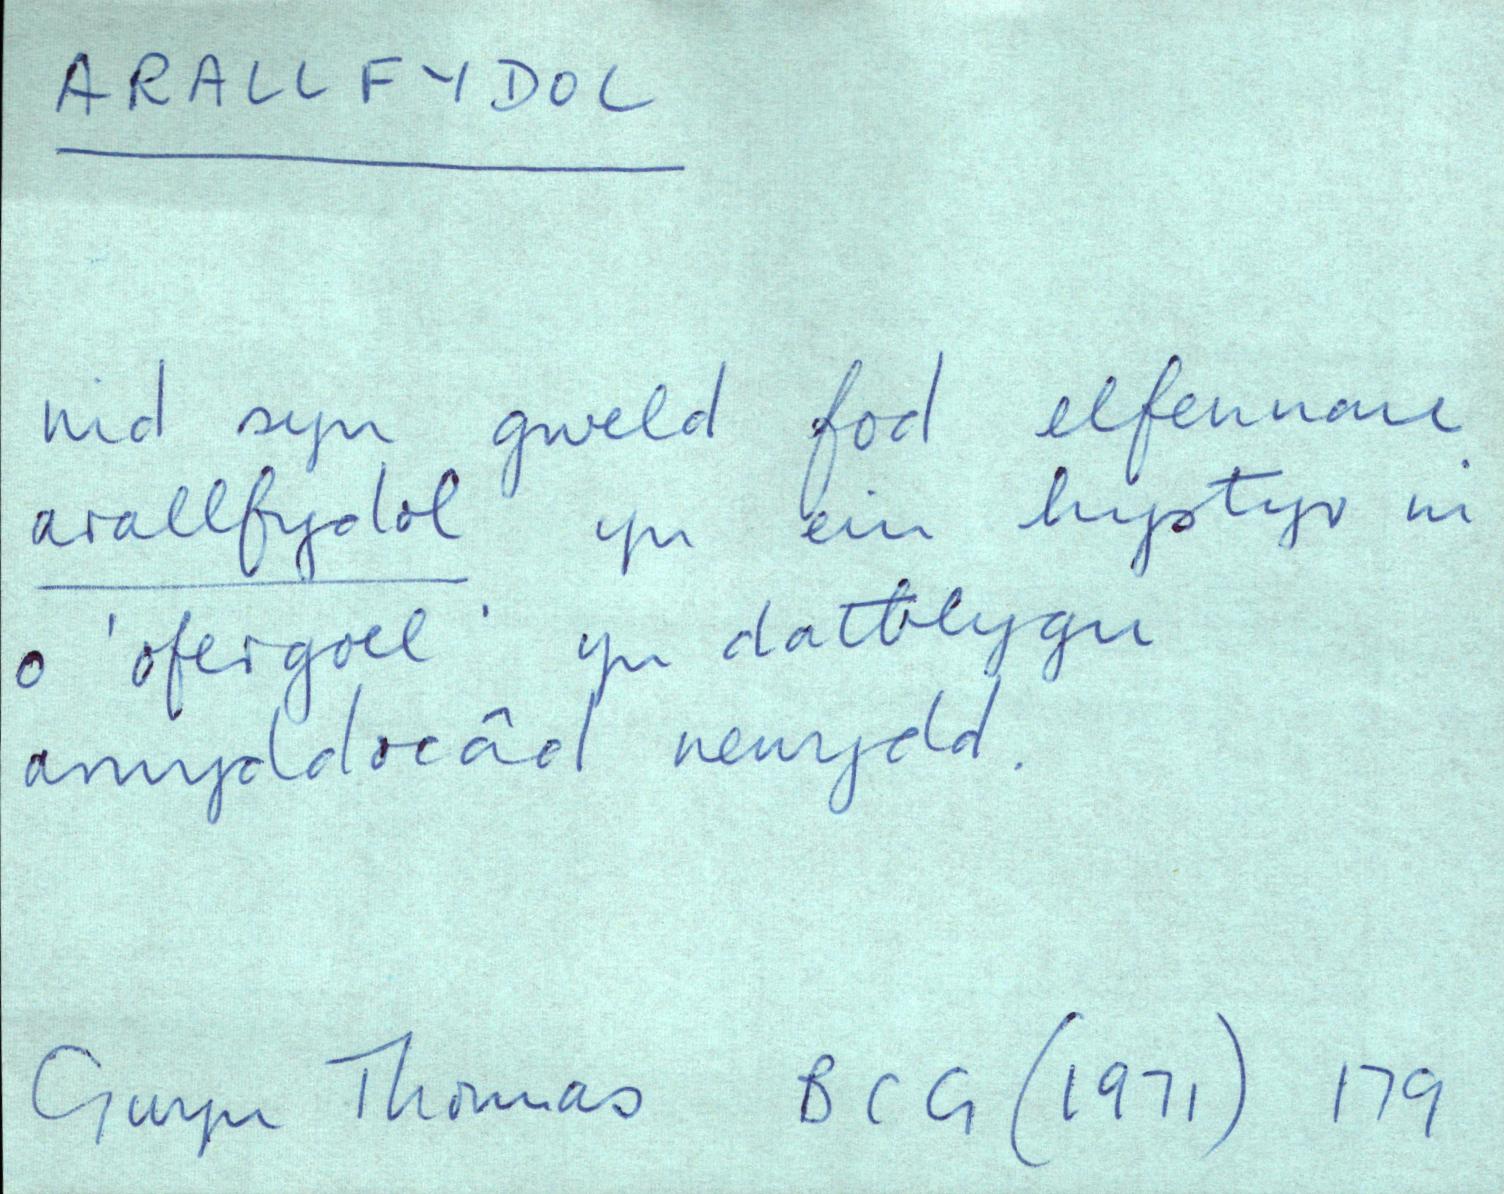 ARALLFYDOL
nid syn gweld fod elfennau
arallfydol yn ein hystyr ni
o 'ofergoel' yn datblygu
arwyddocâd newydd.
Gwyn Thomas BCG (1971) 179